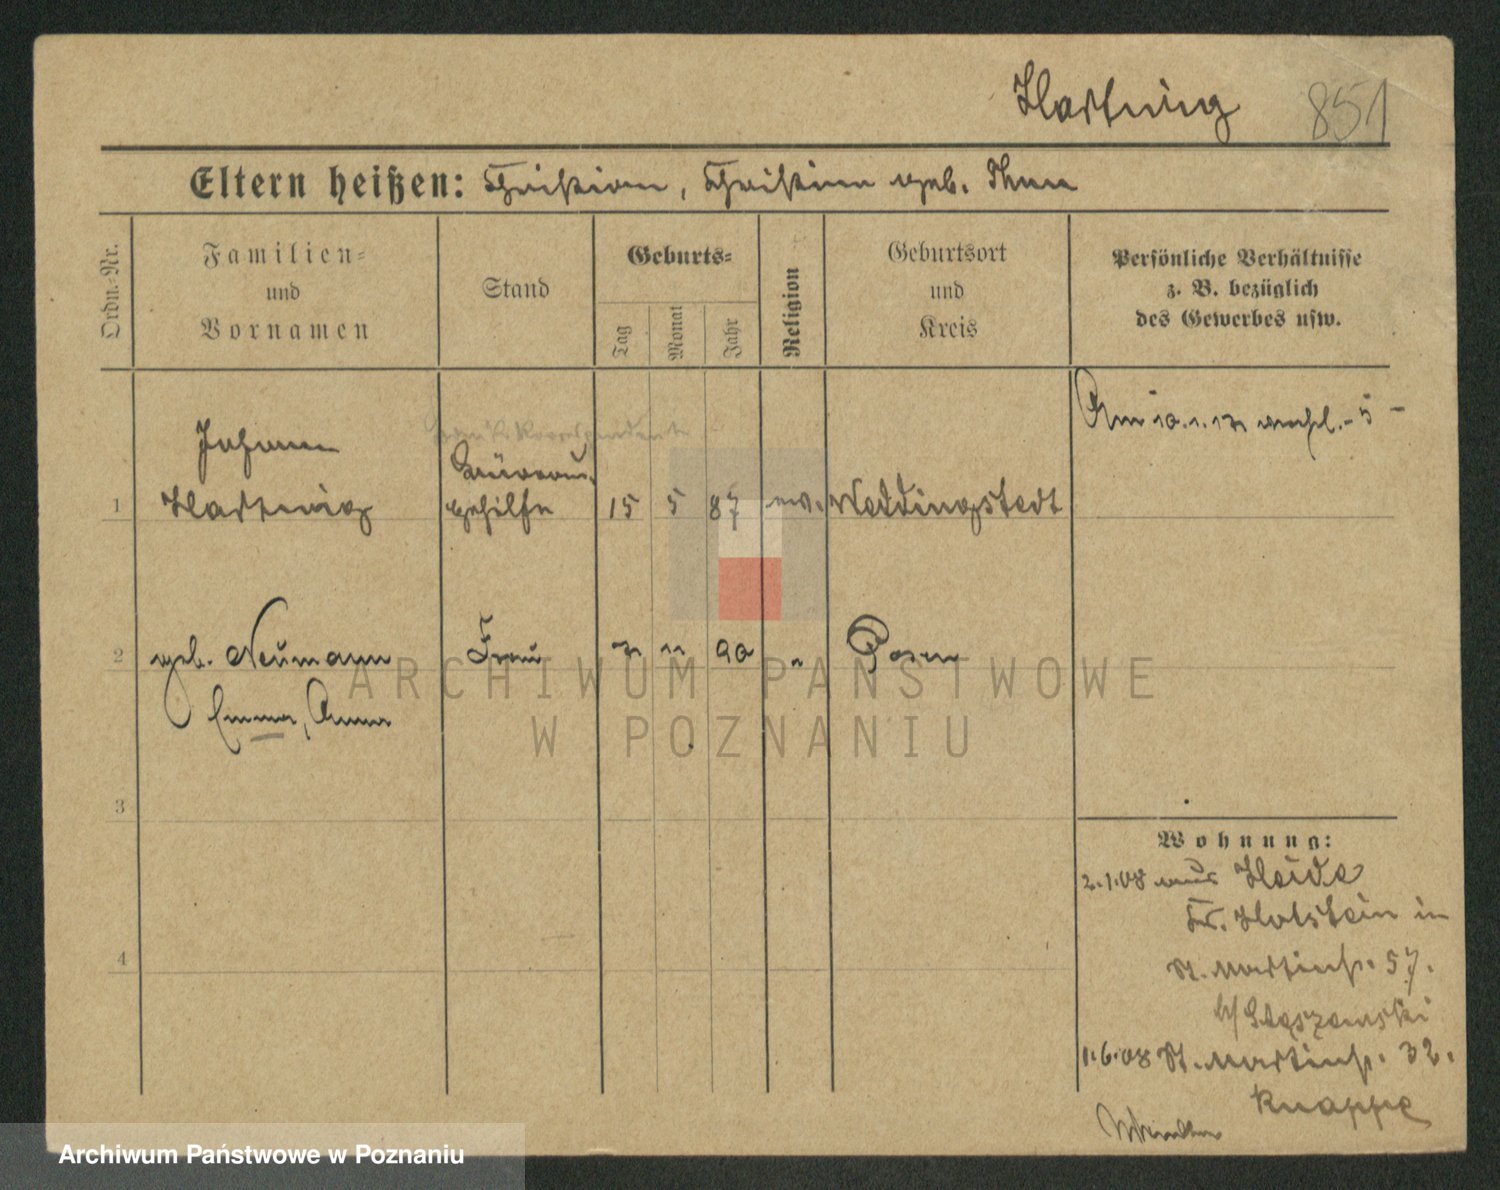 Hartwig
851
Eltern heißen: Christian, Christine geb. Thun
Ordn.-Nr.
Familien-
und
Vornamen
Stand
Geburts-
Tag
Monat
Jahr
Religion
Geburtsort
und
Kreis
Persönliche Verhältnisse
z. B. bezüglich
des Gewerbes usw.
Am 10.1.12
Johann
1 Hartwig
gehilfe 15 5 87 ev. Weddingstedt
2 geb. Neumann Frau 7 11 90 " Posen
Emma, Anna
3
4
Wohnung:
2.1.08 aus Heide
Kr. Holstein in
St. Martinstr. 57.
1.6.08 St. Martinstr. 32.
Knappe
ARCHIWUM PAŃSTWOWE
W POZNANIU
Archiwum Państwowe w Poznaniu